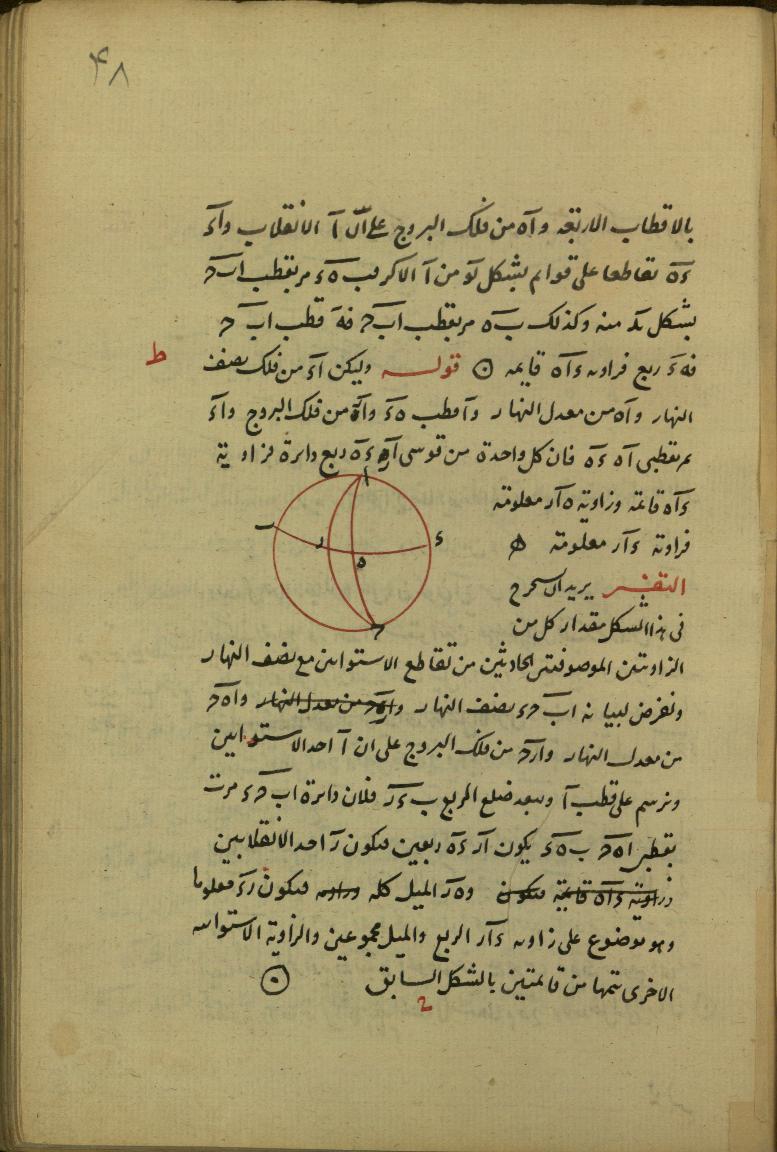 ۴۸
بالاقطاب الاربعة و آه من فلك البروج على ان آ الانقلاب و آء
ءه تقاطعا على قوايم بشكل من آ الاكر ه ء مر بقطب اب ح
بشكل منه وكذلك ب ه مر بقطب اب ح فه قطب اب ح
فه ء ربع فزاوية ء آه قايمة قوله وليكن آء من فلك نصف
ط
النهار و آه من معدل النهار و آ قطب ه ء و آه من فلك البروج و آء
يمر بقطبي آه ءه فان كل واحدة من قوسي آه ءه ربع دائرة فزاوية
ء آه قائمة وزاوية ه آر معلومة
فزاوية ء آر معلومة ه
التفسير يريد ان يستخرج
في هذا الشكل مقدار كل من
ا
ب
ر
ء
ه
ح
الزاويتين الموصوفتين الحادثتين من تقاطع الاستوائين مع نصف النهار
ونفرض لبيانه اب ح ء نصف النهار و آر ح من معدل النهار و آه ح
من معدل النهار و آر ح من فلك البروج على ان آ احد الاستوائين
ونرسم على قطب آ وببعد ضلع المربع ب ء ر فلان دائرة اب ح ء مرت
بقطبي اه ح ب ه ء يكون آر ءه ربعين فيكون ر احد الانقلابين
وزاوية ء آه قائمة فيكون و ه ر الميل كله وزاوية فيكون ر ء معلوما
وهو موضوع على زاوية ء آر الربع والميل مجموعين والزاوية الاستوائية
الاخرى تتمها من قائمتين بالشكل السابق
2